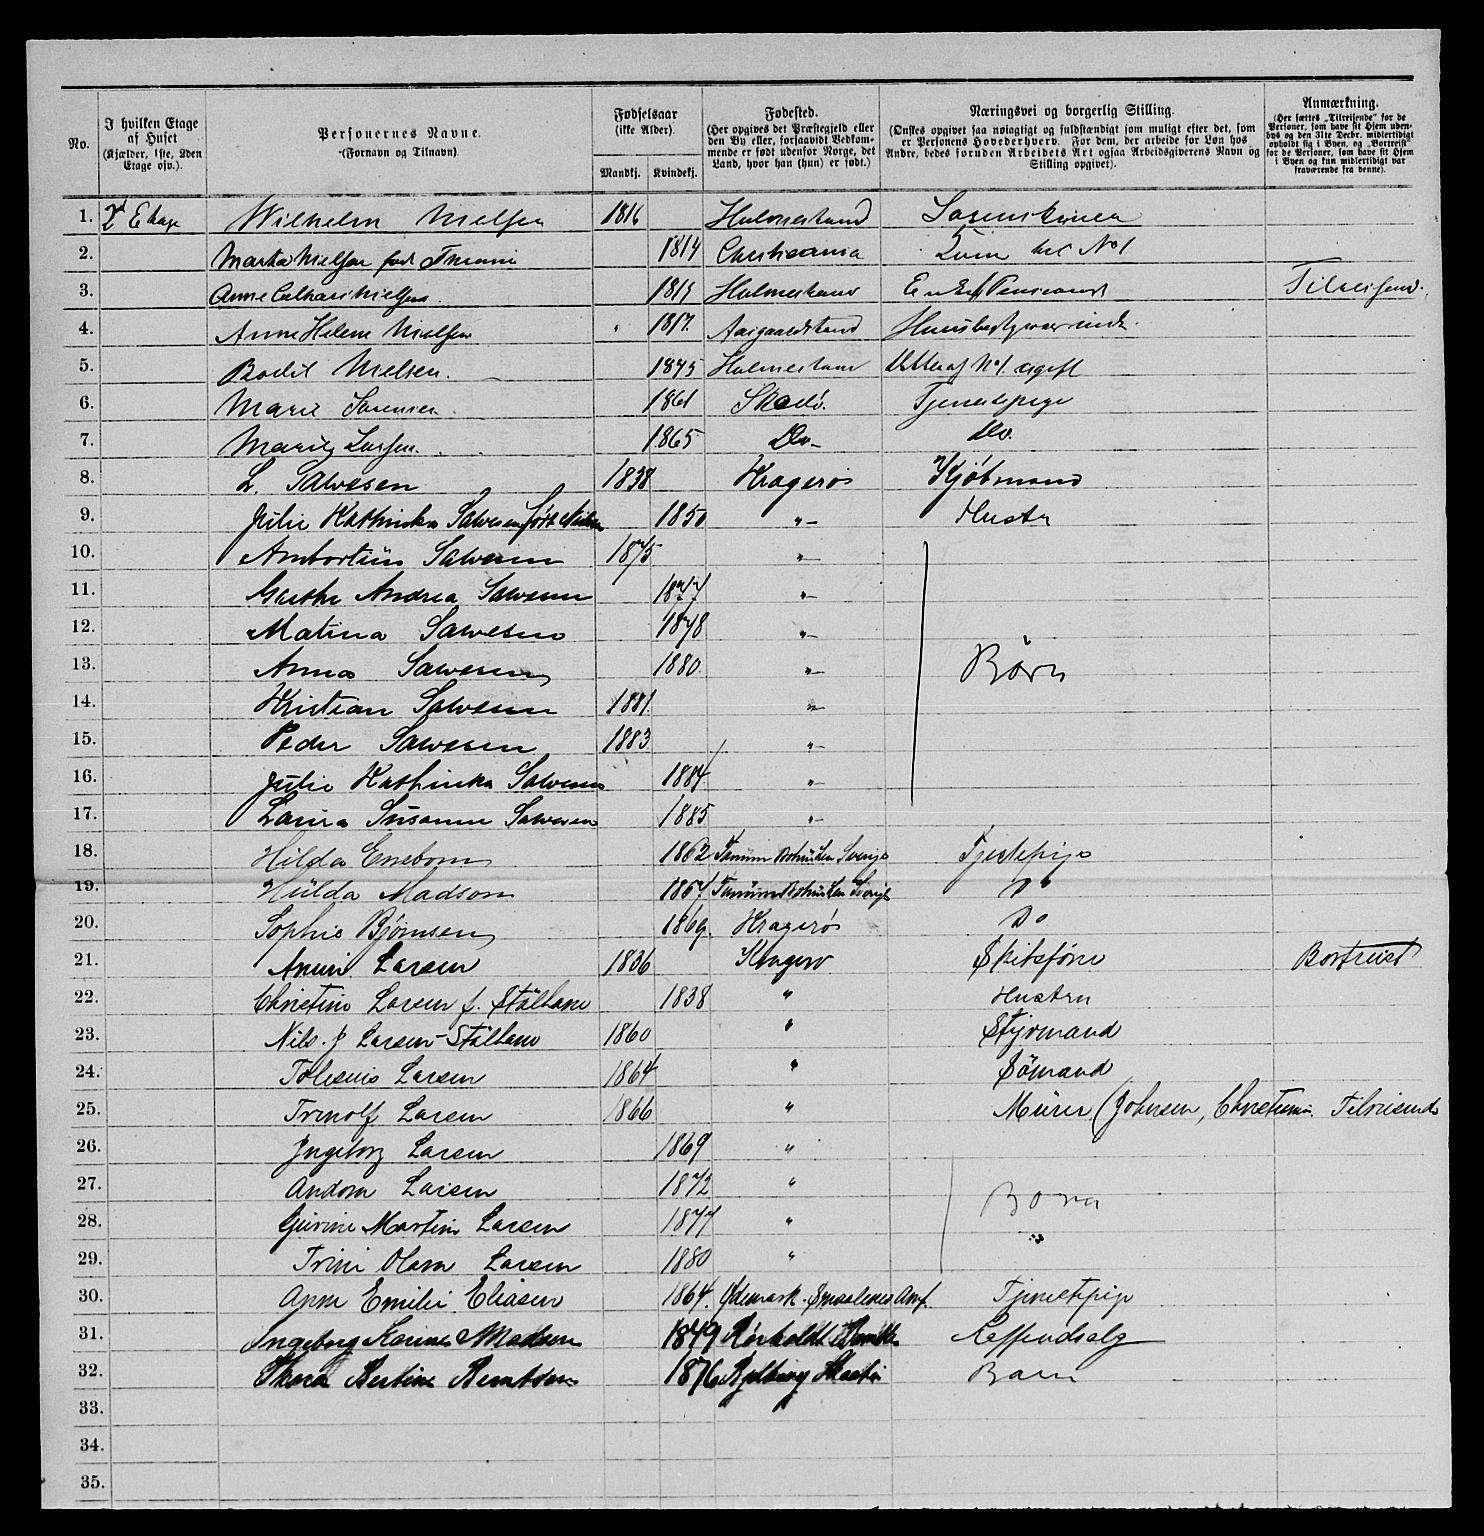 No. | I hvilken Etage af Huset (Kjælder, 1ste, 2den Etage osv.). | Personernes Navne. (Fornavn og Tilnavn) | Fødselsaar (ikke Alder). Mandkj. Kvindekj. | Fødested. (Her opgives det Præstegjeld eller den By eller, forsaavidt Vedkommende er født udenfor Norge, det Land, hvor han (hun) er født.) | Næringsvei og borgerlig Stilling. (Ønskes opgivet saa nøiagtigt og fuldstændigt som muligt efter det, som er Personens Hovederhverv. For dem, der arbeide for Løn hos Andre, bedes foruden Arbeidets Art ogsaa Arbeidsgiverens Navn og Stilling opgivet). | Anmærkning. (Her sættes „Tilreisende" for de Personer, som have sit Hjem udenbys og den 31te Decbr. midlertidigt opholdt sig i Byen, og „Bortreist" for de Personer, som have sit Hjem i Byen og kun midlertidigt var fraværende fra denne).
1. 2d Etage Wilhelm Nielsen 1816 Holmestrand
2. Nielsen 1814 Christiania No 1
3. Anne Nielsen. 1815 Holmestrand Tilreisend.
4. Anne Helene Nielsen 1817. Aasgaardstrand Huusbestyrerinde.
5. Bodil Nielsen. 1845 Holmestrand No 1. ugift
6. Marie Sørensen 1861 Tjenestepige
7. Marie Larsen. 1865 Do- Do.
8. L. Salvesen 1838 Kragerø Kjøbmand
9. Julie Kathinka Salvesen født Nielsen 1850 "- Hustr
10. Salvesen 1875 "-
11. Grethe Andrea Salvesen 1877 "-
12. Matina Salvesen 1878 "-
13. Anna Salvesen 1880. "- Børn
14. Kristian Salvesen 1881. "-
15. Peder Salvesen 1883 "-
16. Julie Kathinka Salvesen 1884. "-
17. Laura Susanne Salvesen 1885 "-
18. Hilda Enebom 1862 Tanum Bohuslen Sverige Tjestepige
19. Hulda Madsom 1867. Tanum Bohuslen Sverige Do
20. Sophie Bjørnsen 1869. Kragerø Do
21. Larsen 1836 Kragerø Skibsføre Bortreist
22. Christine Larsen f. Stålhane 1838 " Hustru
23. Nils. J Larsen-Stålhane 1860 " Styrmand
24. Larsen 1864 " Sømand
25. Larsen 1866 " Murer (Johnsen, Christiania. Tilreisend
26. Ingeborg Larsen 1869 "
27. Larsen 1872 " Børn
28. Gurine Martine Larsen 1877 " "
29. Trine Larsen 1880 "
30. Anne Emilie Eliasen 1864. Ødemark. Smaalenes Amt. Tjenestpige
31. Ingeborg Karine Madsen 1849 Kaffeudsalg
32. Thora Bertine Berntsen 1876 Barn
33.
34.
35.